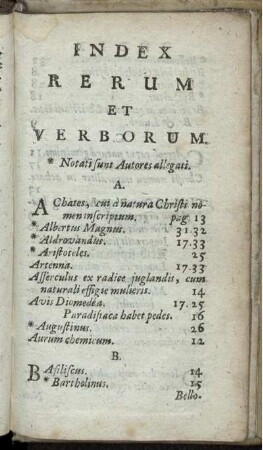 INDEX
RERUM
ET
VERBORUM.
* Notati sunt Autores allegati.
A.
AChates, cui à natura Christi no-
men inscriptum. pag. 13
* Albertus Magnus. 31.32
* Aldrovandus. 17.33
* Aristoteles. 25
Artenna. 17.33
Asserculus ex radice juglandis, cum
naturali effigie mulieris. 14
Avis Diomedéa. 17.25
Paradisiaca habet pedes. 16
* Augustinus. 26
Aurum chemicum. 12
B.
BAsiliscus. 14
* Bartholinus. 15
Bello.